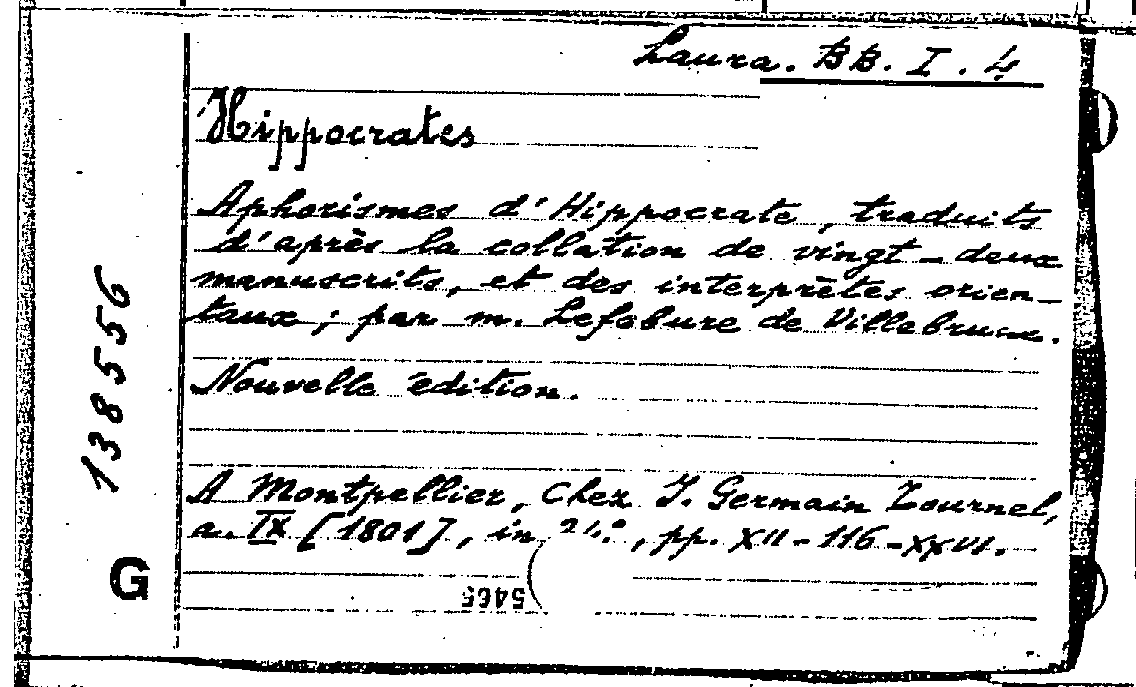 Laura. BB. I. 4
Hippocrates
Aphorismes d'Hippocrate, traduits
d'après la collation de vingt-deux
manuscrits, et des interprètes orien-
taux; par m. Lefebure de Villebrune.
Nouvelle édition.
A Montpellier, Chez J. Germain Tournel,
a. IX [1801], in 24°, pp. XII-116-XXVI.
138556
G
5465